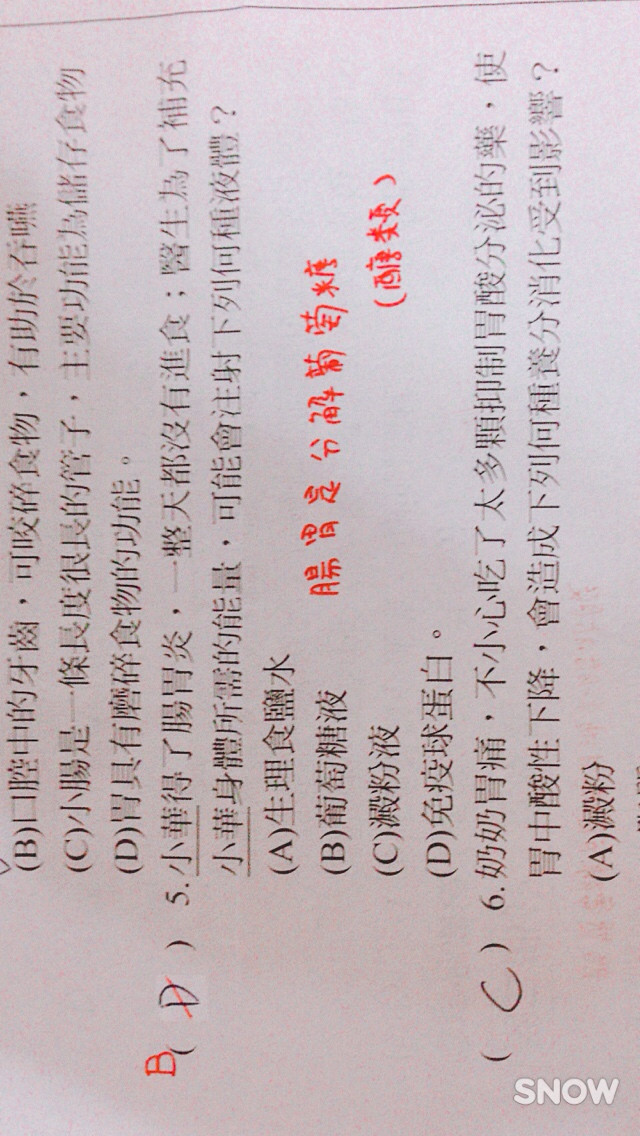 (B)口腔中的牙齒，可咬碎食物，有助於吞嚥
(C)小腸是一條長度很長的管子，主要功能為儲存食物
(D)胃具有磨碎食物的功能。
B( D ) 5. 小華得了腸胃炎，一整天都沒有進食；醫生為了補充
小華身體所需的能量，可能會注射下列何種液體？
(A)生理食鹽水
(B)葡萄糖液
腸胃是分解葡萄糖
(C)澱粉液
(醣類)
(D)免疫球蛋白。
( C ) 6. 奶奶胃痛，不小心吃了太多顆抑制胃酸分泌的藥，使
胃中酸性下降，會造成下列何種養分消化受到影響？
(A)澱粉
SNOW